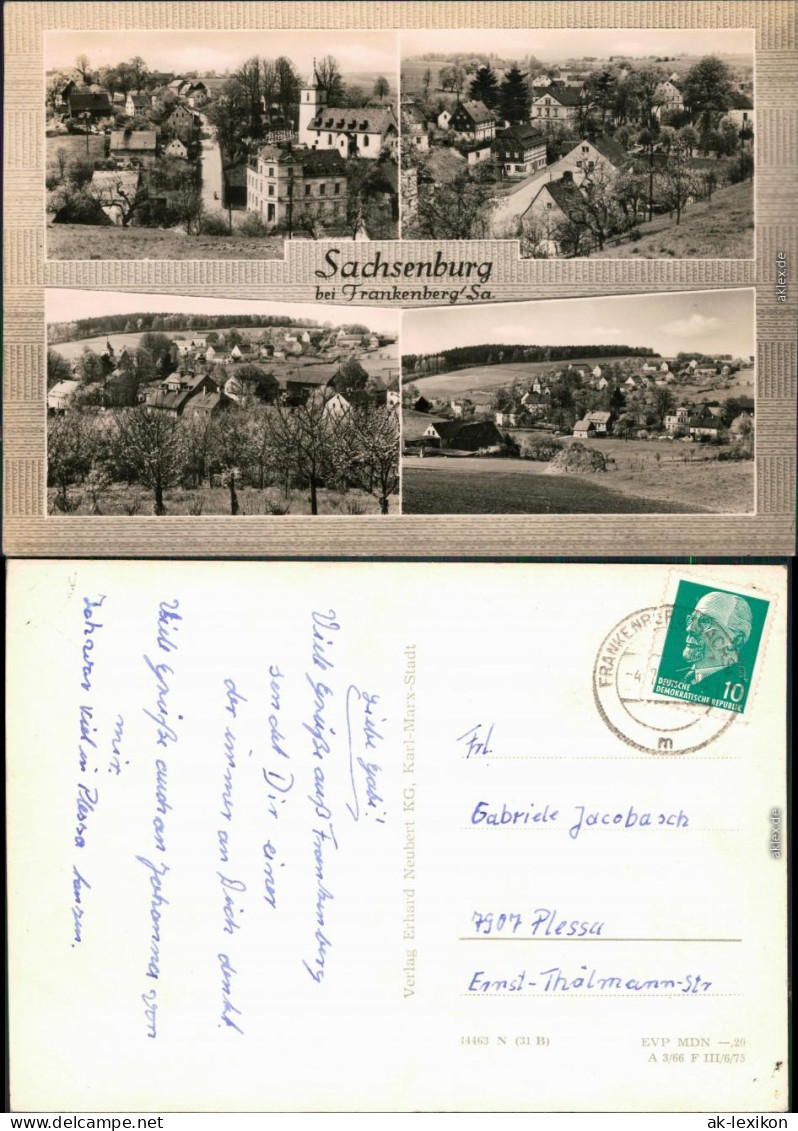 Sachsenburg
bei Frankenberg/Sa.
Liebe Gabi!
Viele Grüße auß Frankenberg
sendet Dir einer
der immer an Dich denkt.
Viele Grüße auch an Johanna von
mir.
Ich war viel in Plessa tanzen.
Verlag Erhard Neubert KG, Karl-Marx-Stadt
FRANKENBERG
DEUTSCHE
DEMOKRATISCHE REPUBLIK
10
m
Frl.
Gabriele Jacobasch
7907 Plessa
Ernst-Thälmann-Str
14463 N (31 B)
EVP MDN —,20
A 3/66 F III/6/75
aklex.de
aklex.de
www.ak-lexikon.de
ak-lexikon.com